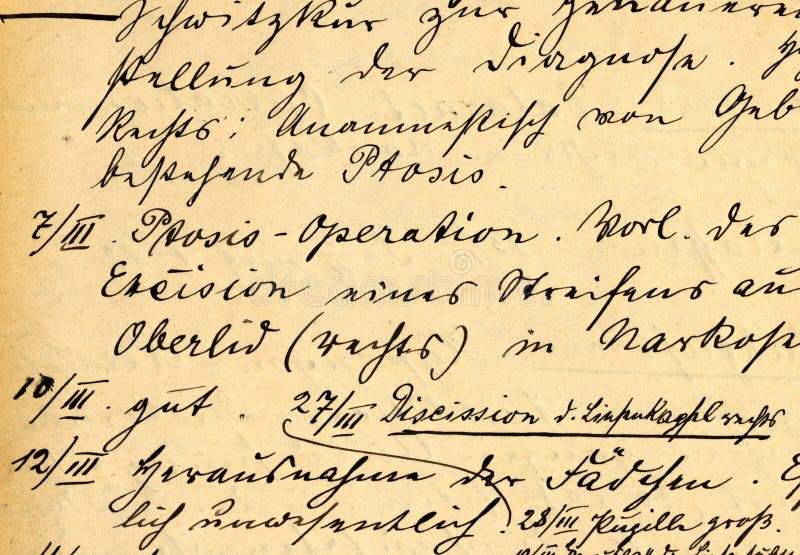 Schwitzkur zur genauere
stellung der Diagnose. H
Rechts: Anamnestisch von Geb
bestehende Ptosis.
7/III. Ptosis-Operation. Vorl. des
Excision eines Streifens au
Oberlid (rechts) in Narkose
10/III. gut. 27/III Discission d. Linsenkapsel rechts
12/III Herausnahme der Fädchen.
lich unwesentlich. 28/III Pupille groß.
dreamstime